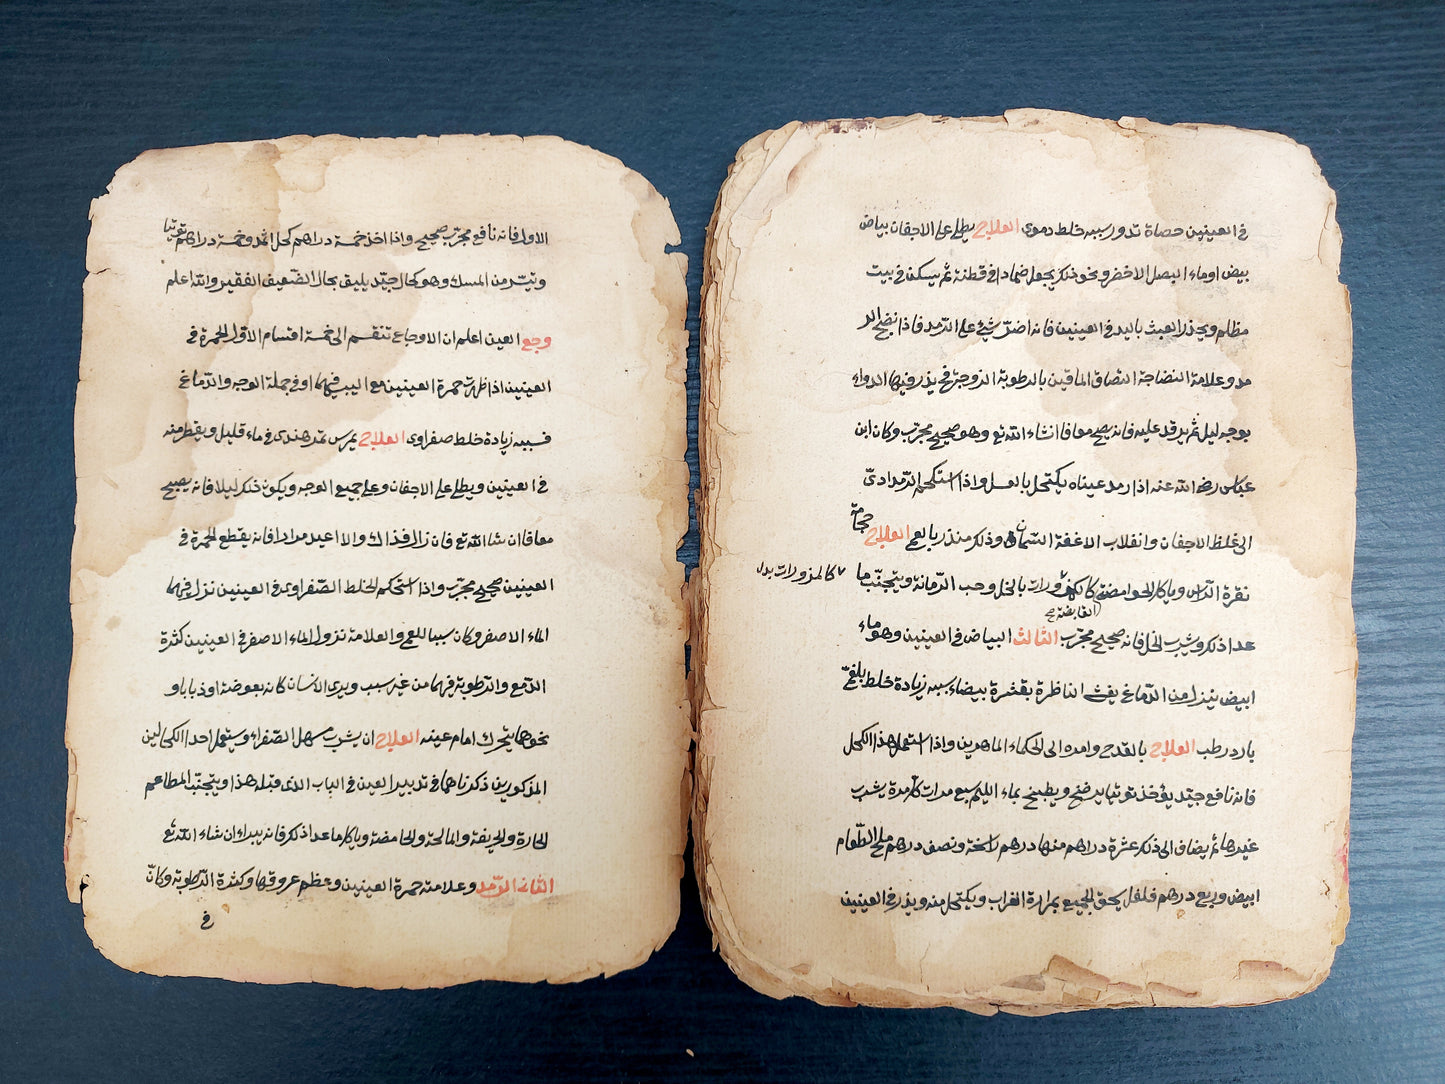 الاول فانه نافع مجرب صحيح واذا اخذ خمسة دراهم كحل اثمد وخمسة دراهم توتيا
وشئ من المسك وهو كحال جيّد يليق بحال الضعيف الفقير والله اعلم
وجع العين اعلم ان الاوجاع تنقسم الى خمسة اقسام الاول الحمرة في
العينين اذا ظهرت حمرة العينين مع اليبس فيهما او في جملة الوجه والدّماغ
فسببه زيادة خلط صفراوى العلاج يمرس تمر هندى في ماء قليل ويقطر منه
في العينين ويطلى على الاجفان وعلى جميع الوجه ويكون ذلك ليلا فانه يصبح
معافا ان شا الله تع فان زال فذاك والا اعيد مرارا فانه يقطع الحمرة في
العينين صحيح مجرّب واذا استحكم الخلط الصّفراوى في العينين نزل فيهما
الماء الاصفر وكان سببا للعمى والعلامة نزول الماء الاصفر في العينين كثرة
الدّمع والرّطوبة فيهما من غير سبب ويرى الانسان كانه بعوضة او ذبابا او
نحوها يتحرك امام عينه العلاج ان يشرب مسهل الصّفراء ويستعمل احد الكحالين
المذكورين ذكرناهما في تدبير العين في الباب الذى قبله هذا ويتجنّب المطاعم
الحارة والحريفة والمالحة والحامضة وياكل ما عدا ذلك فانه يبراء ان شاء الله تع
الثانى الرّمد وعلامته حمرة العينين وعظم عروقها وكثرة الرّطوبة وكانّ
في
في العينين حصاة تدور سببه خلط دموى العلاج يطلى على الاجفان بياض
بيض او ماء البصل الاخضر ونحو ذلك يجعل ضمادا في قطنة ثم يسكن في بيت
مظلم ويحذر العبث باليد في العينين فانه اضرّ شئ على الرّمد فاذا نضج الر
مد وعلامة النضاجة التصاق الماقين بالرطوبة اللزوجة فح يذر فيها الدواء
بوجه ليل ثم يرقد عليه فانه يصبح معافا انشاء الله تع وهو صحيح مجرّب وكان ابن
عباس رضى الله عنه اذا رمد عيناه يكتحل بالعسل واذا استحكم الرّمد ادىّ
الى غلظ الاجفان وانقلاب الاغفة السّمان وذلك منذر بالعمى العلاج حجامة
نقرة الرّاس وياكل الحوامضة كالمزورات بالخل وحب الرّمانة ويتجنّب ما
كالمزورات بدل
القابضة صح
عدا ذلك ويشرب الخل فانه صحيح مجرّب الثالث البياض في العينين وهو ماء
ابيض ينزل من الدّماغ يغشى الناظرة بقشرة بيضاء سببه زيادة خلط بلغمىّ
بارد رطب العلاج بالقدح وامره الى الحكماء الماهرين واذا استعمل هذا الكحل
فانه نافع جيّد يؤخذ توتيا يرضخ ويطبخ بماء الليم سبع مرات كل مرة يشرب
غيرها ثم يضاف الى ذلك عشرة دراهم منها درهم راسخة ونصف درهم ملح الطّعام
ابيض وربع درهم فلفل يسحق الجميع بمرارة الغراب ويكتحل منه ويذر في العينين